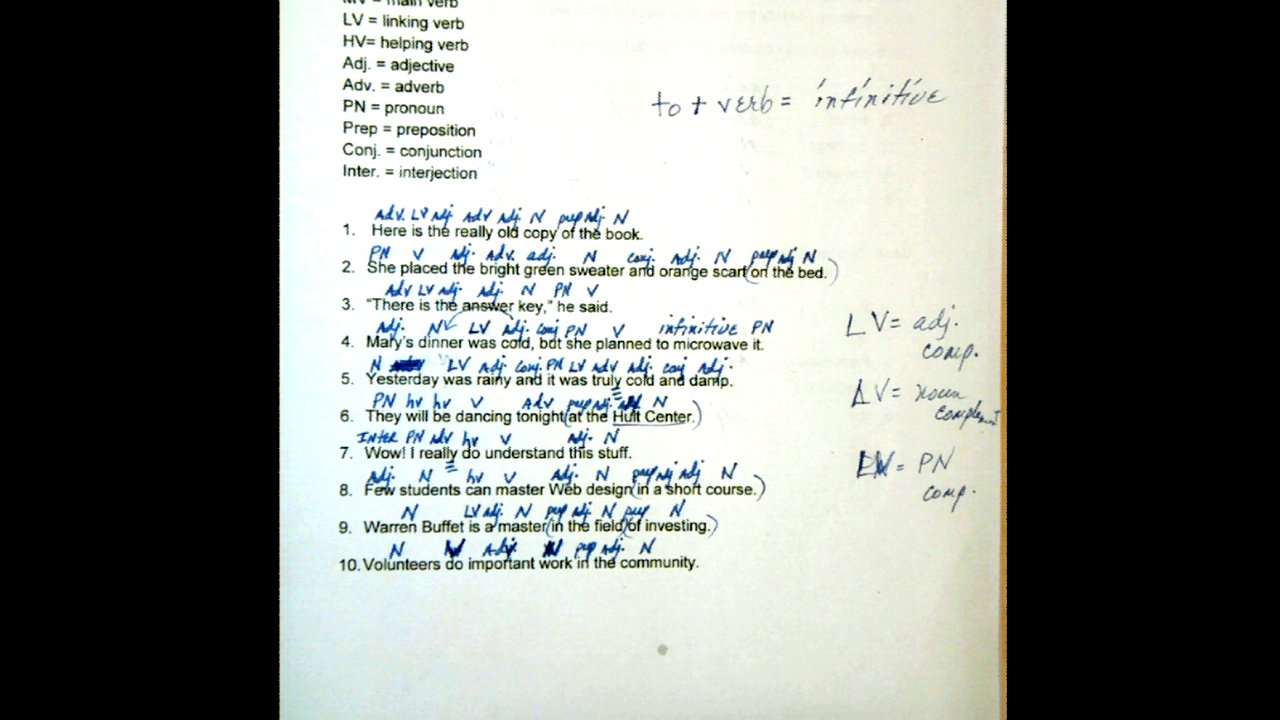 MV = main verb
LV = linking verb
HV= helping verb
Adj. = adjective
Adv. = adverb
PN = pronoun
Prep = preposition
Conj. = conjunction
Inter. = interjection
to + verb = infinitive
Adv. LV adj. Adv adj. N prep adj. N
1. Here is the really old copy of the book.
PN V adj. Adv. adj. N conj. Adj. N prep adj N
2. She placed the bright green sweater and orange scarf (on the bed.)
Adv LV adj. Adj. N PN V
3. "There is the answer key," he said.
Adj. N LV adj. conj PN V infinitive PN
4. Mary's dinner was cold, but she planned to microwave it.
N LV Adj conj. PN LV adv adj. conj Adj.
5. Yesterday was rainy and it was truly cold and damp.
PN hv hv V Adv prep adj. N
6. They will be dancing tonight (at the Hult Center.)
INTER PN adv hv V adj. N
7. Wow! I really do understand this stuff.
Adj. N hv V Adj. N prep adj adj N
8. Few students can master Web design (in a short course.)
N LV adj. N prep adj. N prep N
9. Warren Buffet is a master (in the field) (of investing.)
N Adj. N prep adj. N
10. Volunteers do important work in the community.
LV = adj.
comp.
LV = noun
complement
LV = PN
comp.